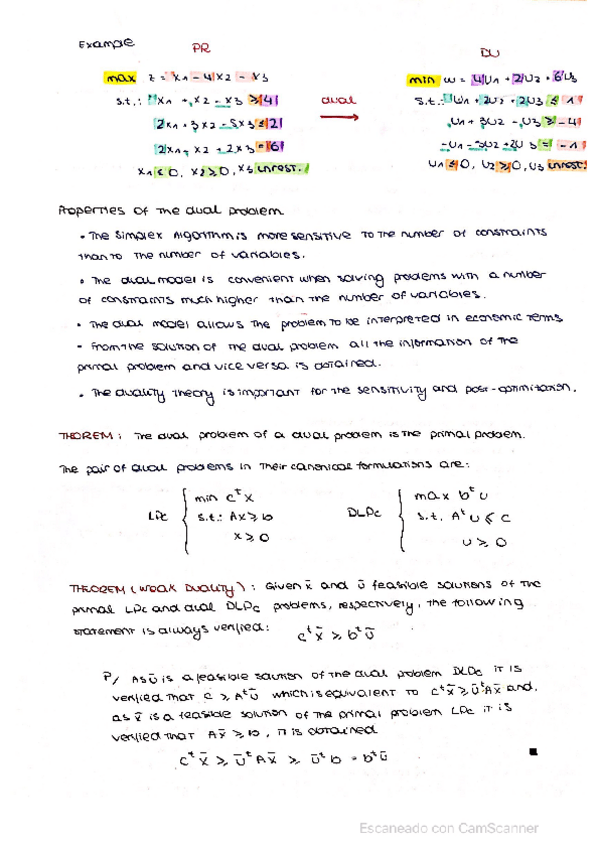 Example
PR
DU
max z = x1 - 4x2 - x3
min w = 4u1 + 2u2 + 6u3
s.t.: x1 + x2 - x3 ≥ 4
dual
s.t.: u1 + 2u2 + 2u3 ≤ 1
2x1 + 3x2 - 5x3 ≤ 2
u1 + 3u2 - u3 ≥ -4
2x1 - x2 + 2x3 = 6
-u1 - 5u2 + 2u3 = -1
x1 ≤ 0, x2 ≥ 0, x3 unrest.
u1 ≤ 0, u2 ≥ 0, u3 unrest.
Properties of the dual problem
• The simplex algorithm is more sensitive to the number of constraints
than to the number of variables.
• The dual model is convenient when solving problems with a number
of constraints much higher than the number of variables.
• The dual model allows the problem to be interpreted in economic terms
- From the solution of the dual problem all the information of the
primal problem and vice versa is obtained.
• The duality theory is important for the sensitivity and post-optimization.
THEOREM: The dual problem of a dual problem is the primal problem.
The pair of dual problems in their canonical formulations are:
LPc { min cᵗx
s.t.: Ax ≥ b
x ≥ 0
DLPc { max bᵗu
s.t. Aᵗu ≤ c
u ≥ 0
THEOREM (WEAK DUALITY): Given x̄ and ū feasible solutions of the
primal LPc and dual DLPc problems, respectively, the following
statement is always verified: cᵗx̄ ≥ bᵗū
P/ As ū is a feasible solution of the dual problem DLPc it is
verified that c ≥ Aᵗū which is equivalent to cᵗx̄ ≥ ūᵗAx̄ and,
as x̄ is a feasible solution of the primal problem LPc it is
verified that Ax̄ ≥ b, it is obtained
cᵗx̄ ≥ ūᵗAx̄ ≥ ūᵗb = bᵗū ■
Escaneado con CamScanner